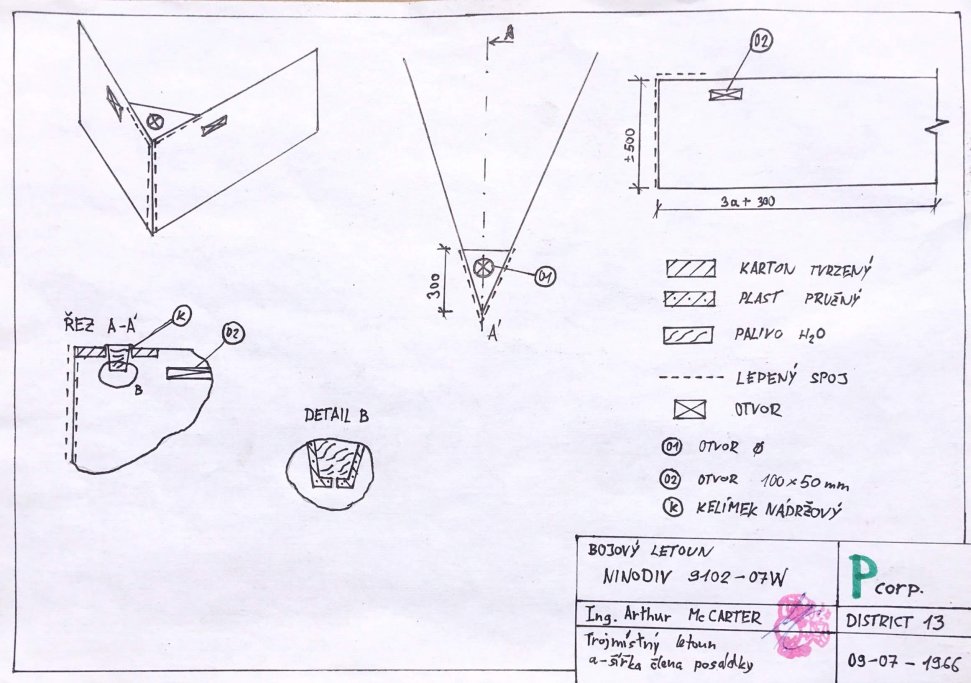 A
02
300
01
A'
± 500
3a + 300
ŘEZ A-A'
K
02
B
DETAIL B
KARTON TVRZENÝ
PLAST PRUŽNÝ
PALIVO H₂O
LEPENÝ SPOJ
OTVOR
01 OTVOR Ø
02 OTVOR 100×50 mm
K KELÍMEK NÁDRŽOVÝ
BOJOVÝ LETOUN
NINODIV 9102-07W
Ing. Arthur Mc CARTER
Trojmístný letoun
a-šířka člena posádky
P corp.
DISTRICT 13
09-07-1966